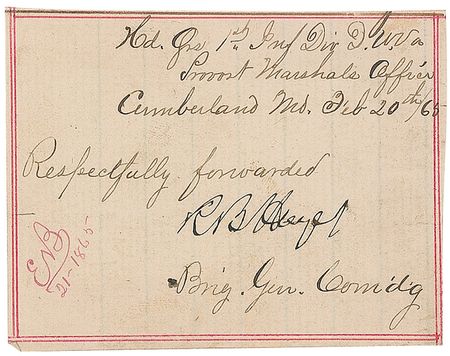 Hd. Qrs 1st Inf Div D. W Va
Provost Marshals Office
Cumberland Md. Feb 20th/65
Respectfully forwarded
R B Hayes
Brig. Gen. Comd'g
21-1865